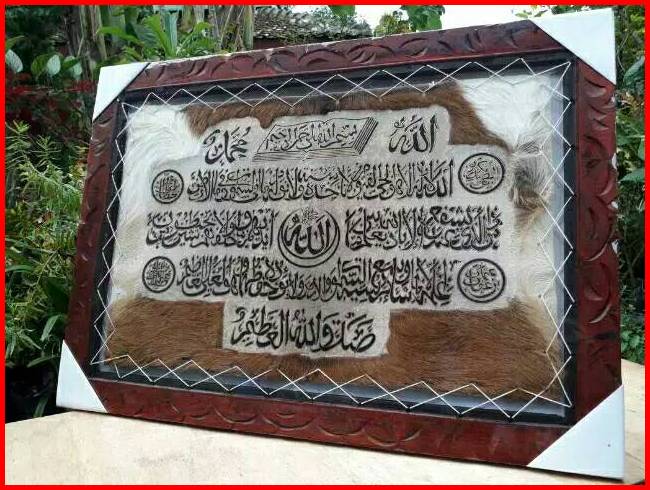 الله بسم الله الرحمن الرحيم محمد
الله لا إله إلا هو الحي القيوم لا تأخذه سنة ولا نوم له ما في السموات وما في الأرض
من ذا الذي يشفع عنده إلا بإذنه يعلم ما بين الله أيديهم وما خلفهم ولا يحيطون بشيء من
علمه إلا بما شاء وسع كرسيه السموات والأرض ولا يؤده حفظهما وهو العلي العظيم
صدق الله العظيم